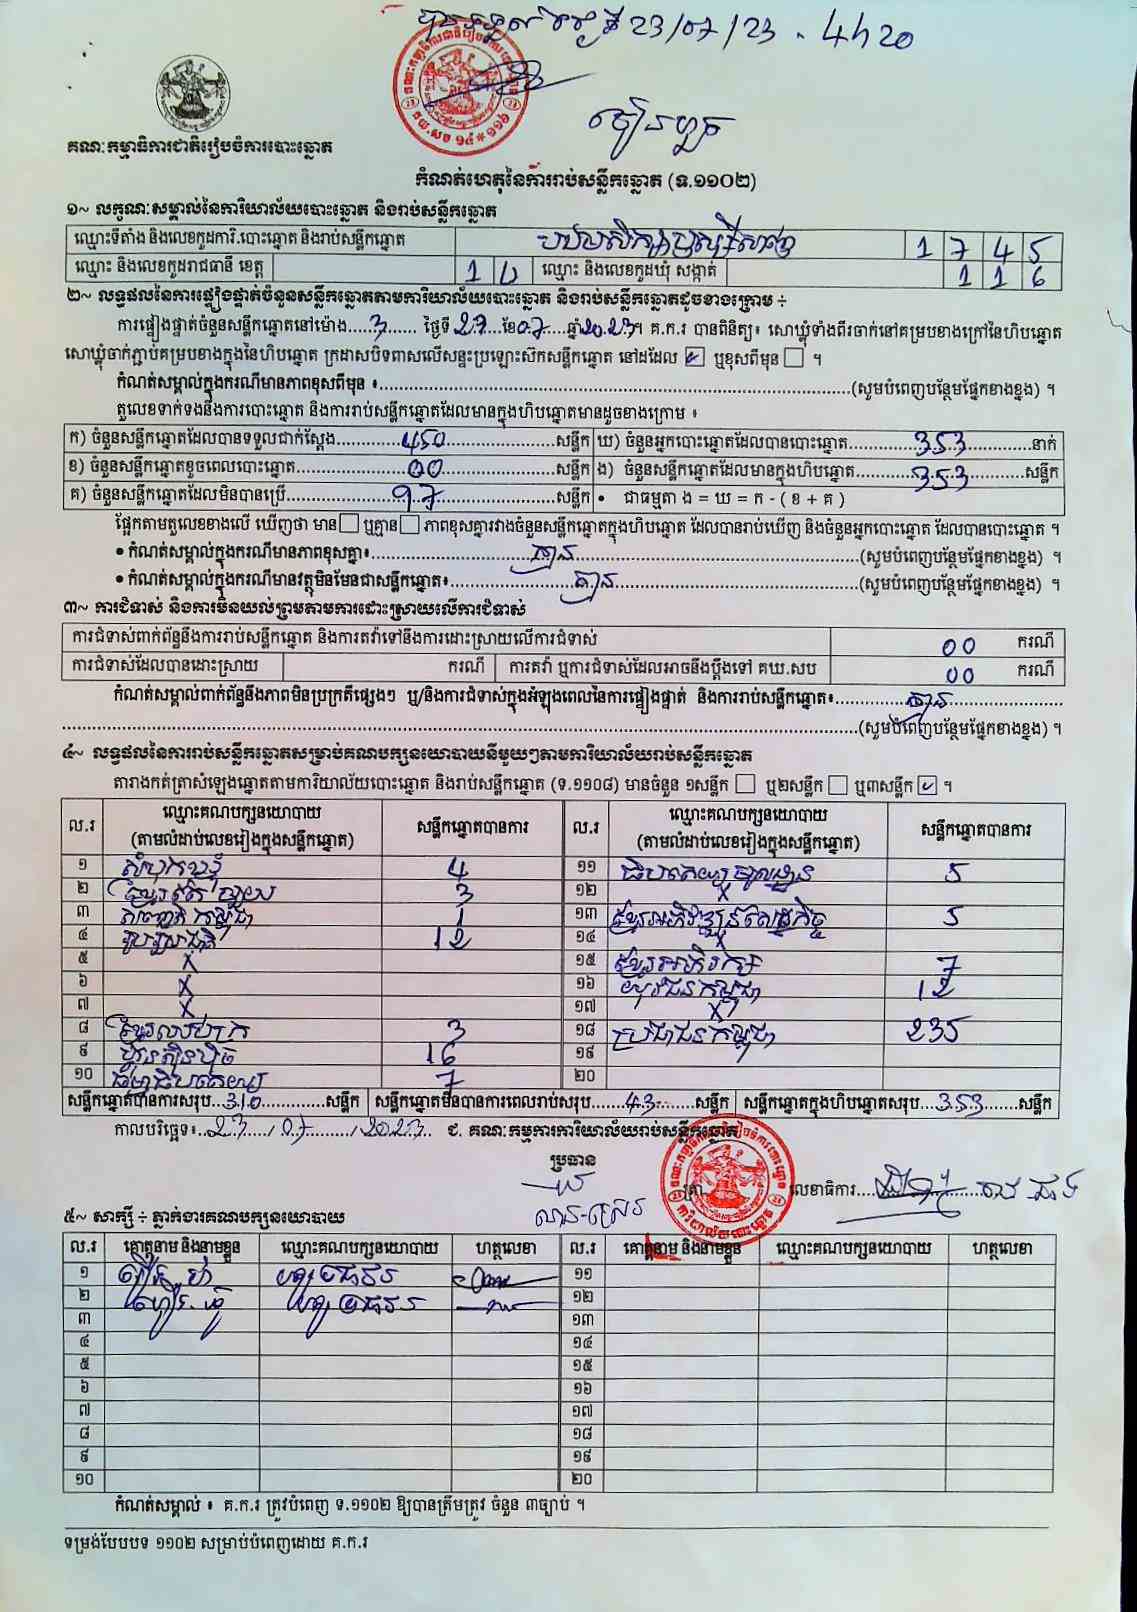 23/07/23 . 4h20
គណៈកម្មាធិការជាតិរៀបចំការបោះឆ្នោត
កំណត់ហេតុនៃការរាប់សន្លឹកឆ្នោត (ទ.១១០២)
១~ លក្ខណៈសម្គាល់នៃការិយាល័យបោះឆ្នោត និងរាប់សន្លឹកឆ្នោត
ឈ្មោះទីតាំង និងលេខកូដការិ.បោះឆ្នោត និងរាប់សន្លឹកឆ្នោត 1 7 4 5
ឈ្មោះ និងលេខកូដរាជធានី ខេត្ត ឈ្មោះ និងលេខកូដឃុំ សង្កាត់ 1 1 6
២~ លទ្ធផលនៃការផ្ទៀងផ្ទាត់ចំនួនសន្លឹកឆ្នោតតាមការិយាល័យបោះឆ្នោត និងរាប់សន្លឹកឆ្នោតដូចខាងក្រោម ÷
ការផ្ទៀងផ្ទាត់ចំនួនសន្លឹកឆ្នោតនៅម៉ោង...3...... ថ្ងៃទី 23 ខែ 07 ឆ្នាំ 2023 ។ គ.ក.រ បានពិនិត្យ៖ សោឃ្លុំទាំងពីរចាក់នៅគម្របខាងក្រៅនៃហិបឆ្នោត
សោឃ្លុំចាក់ភ្ជាប់គម្របខាងក្នុងនៃហិបឆ្នោត ក្រដាសបិទពាសលើសន្ទះប្រឡោះស៊កសន្លឹកឆ្នោត នៅដដែល ☑ ឬខុសពីមុន ☐ ។
កំណត់សម្គាល់ក្នុងករណីមានភាពខុសពីមុន ៖......(សូមបំពេញបន្ថែមផ្នែកខាងខ្នង) ។
តួលេខទាក់ទងនឹងការបោះឆ្នោត និងការរាប់សន្លឹកឆ្នោតដែលមានក្នុងហិបឆ្នោតមានដូចខាងក្រោម ៖
ក) ចំនួនសន្លឹកឆ្នោតដែលបានទទួលជាក់ស្តែង......450......សន្លឹក ឃ) ចំនួនអ្នកបោះឆ្នោតដែលបានបោះឆ្នោត......353......នាក់
ខ) ចំនួនសន្លឹកឆ្នោតខូចពេលបោះឆ្នោត......00......សន្លឹក ង) ចំនួនសន្លឹកឆ្នោតដែលមានក្នុងហិបឆ្នោត......353......សន្លឹក
គ) ចំនួនសន្លឹកឆ្នោតដែលមិនបានប្រើ......97......សន្លឹក • ជាធម្មតា ង = ឃ = ក - ( ខ + គ )
ផ្អែកតាមតួលេខខាងលើ ឃើញថា មាន ☐ ឬគ្មាន ☐ ភាពខុសគ្នារវាងចំនួនសន្លឹកឆ្នោតក្នុងហិបឆ្នោត ដែលបានរាប់ឃើញ និងចំនួនអ្នកបោះឆ្នោត ដែលបានបោះឆ្នោត ។
• កំណត់សម្គាល់ក្នុងករណីមានភាពខុសគ្នា៖......គ្មាន......(សូមបំពេញបន្ថែមផ្នែកខាងខ្នង) ។
• កំណត់សម្គាល់ក្នុងករណីមានវត្ថុមិនមែនជាសន្លឹកឆ្នោត៖......គ្មាន......(សូមបំពេញបន្ថែមផ្នែកខាងខ្នង) ។
៣~ ការជំទាស់ និងការមិនយល់ព្រមតាមការដោះស្រាយលើការជំទាស់
ការជំទាស់ពាក់ព័ន្ធនឹងការរាប់សន្លឹកឆ្នោត និងការតវ៉ាទៅនឹងការដោះស្រាយលើការជំទាស់ 00 ករណី
ការជំទាស់ដែលបានដោះស្រាយ ករណី ការតវ៉ា ឬការជំទាស់ដែលអាចនឹងប្តឹងទៅ គឃ.សប 00 ករណី
កំណត់សម្គាល់ពាក់ព័ន្ធនឹងភាពមិនប្រក្រតីផ្សេងៗ ឬ/និងការជំទាស់ក្នុងអំឡុងពេលនៃការផ្ទៀងផ្ទាត់ និងការរាប់សន្លឹកឆ្នោត៖......គ្មាន......
......(សូមបំពេញបន្ថែមផ្នែកខាងខ្នង) ។
៤~ លទ្ធផលនៃការរាប់សន្លឹកឆ្នោតសម្រាប់គណបក្សនយោបាយនីមួយៗតាមការិយាល័យរាប់សន្លឹកឆ្នោត
តារាងកត់ត្រាសំឡេងឆ្នោតតាមការិយាល័យបោះឆ្នោត និងរាប់សន្លឹកឆ្នោត (ទ.១១០៨) មានចំនួន ១សន្លឹក ☐ ឬ២សន្លឹក ☐ ឬ៣សន្លឹក ☑ ។
ល.រ ឈ្មោះគណបក្សនយោបាយ (តាមលំដាប់លេខរៀងក្នុងសន្លឹកឆ្នោត) សន្លឹកឆ្នោតបានការ ល.រ ឈ្មោះគណបក្សនយោបាយ (តាមលំដាប់លេខរៀងក្នុងសន្លឹកឆ្នោត) សន្លឹកឆ្នោតបានការ
១ សំបុកឃ្មុំ 4 ១១ 5
២ 3 ១២ X
៣ 1 ១៣ ខ្មែរអភិវឌ្ឍន៍សេដ្ឋកិច្ច 5
៤ 12 ១៤ X
៥ X ១៥ ខ្មែរអភិរក្ស 7
៦ X ១៦ យុវជនកម្ពុជា 12
៧ X ១៧ X
៨ 3 ១៨ ប្រជាជនកម្ពុជា 235
៩ ហ្វ៊ុនស៊ិនប៉ិច 16 ១៩
១០ ធម្មាធិបតេយ្យ 7 ២០
សន្លឹកឆ្នោតបានការសរុប...310......សន្លឹក សន្លឹកឆ្នោតមិនបានការពេលរាប់សរុប......43......សន្លឹក សន្លឹកឆ្នោតក្នុងហិបឆ្នោតសរុប...353......សន្លឹក
កាលបរិច្ឆេទ៖..23..../07....../2023.. ជ. គណៈកម្មការការិយាល័យរាប់សន្លឹកឆ្នោត
ប្រធាន
ត្រា លេខាធិការ......
៥~ សាក្សី ÷ ភ្នាក់ងារគណបក្សនយោបាយ
ល.រ គោត្តនាម និងនាមខ្លួន ឈ្មោះគណបក្សនយោបាយ ហត្ថលេខា ល.រ គោត្តនាម និងនាមខ្លួន ឈ្មោះគណបក្សនយោបាយ ហត្ថលេខា
១ ១១
២ ១២
៣ ១៣
៤ ១៤
៥ ១៥
៦ ១៦
៧ ១៧
៨ ១៨
៩ ១៩
១០ ២០
កំណត់សម្គាល់ ៖ គ.ក.រ ត្រូវបំពេញ ទ.១១០២ ឱ្យបានត្រឹមត្រូវ ចំនួន ៣ច្បាប់ ។
ទម្រង់បែបបទ ១១០២ សម្រាប់បំពេញដោយ គ.ក.រ